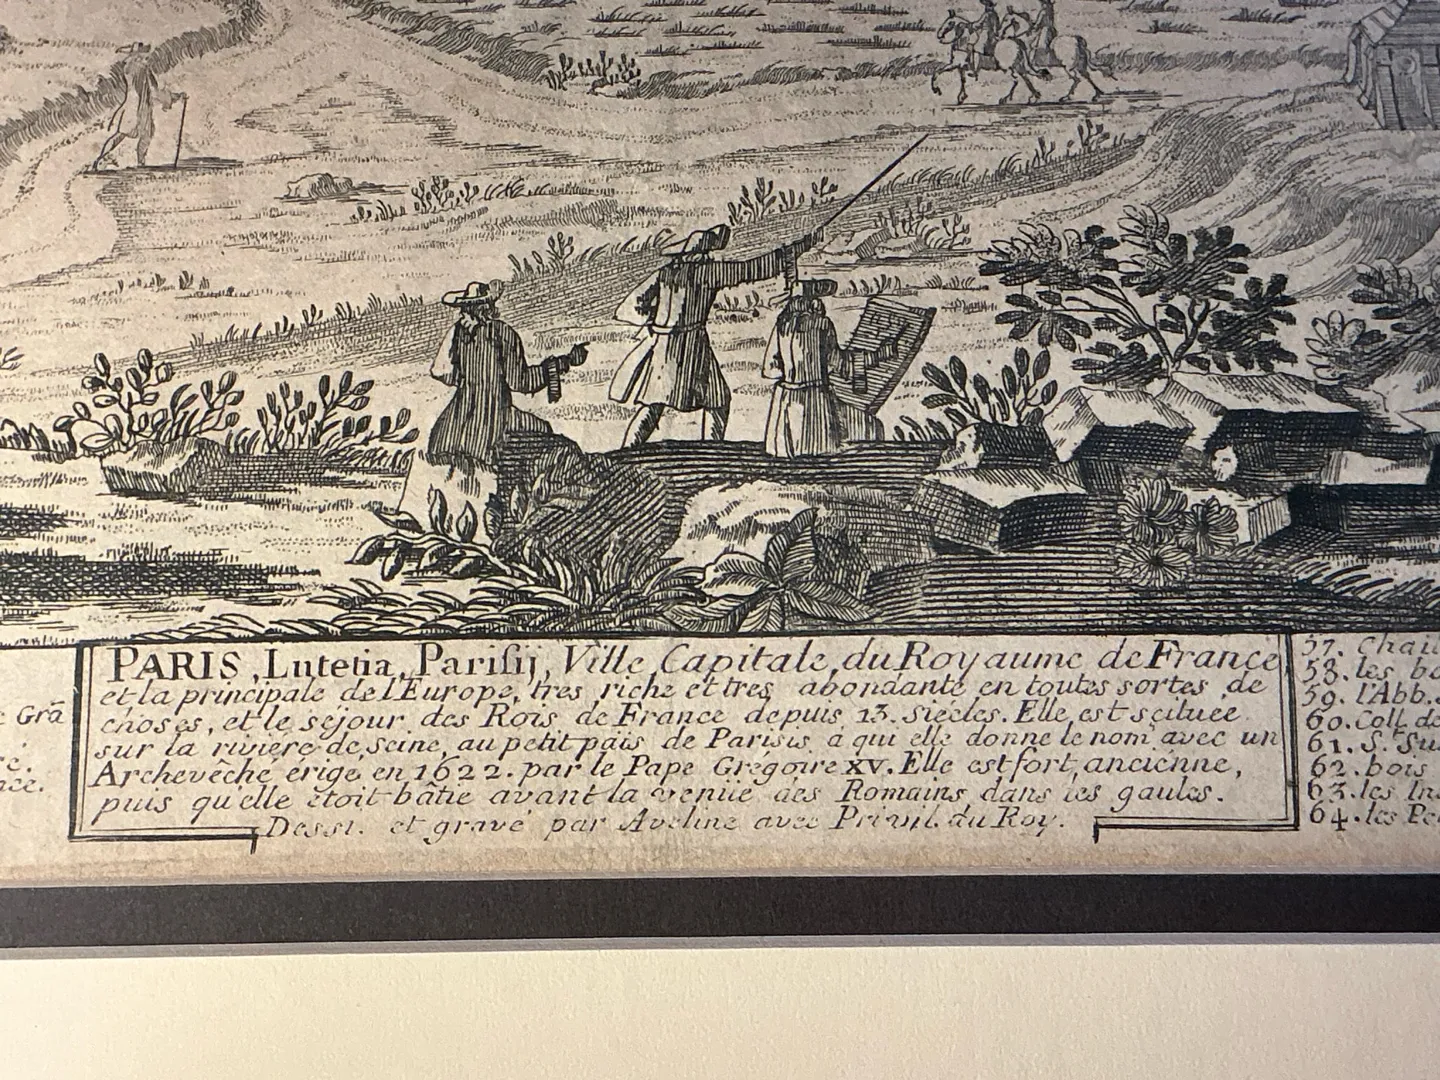 PARIS, Lutetia, Parisij, Ville Capitale, du Royaume de France
et la principale de l'Europe, tres riche et tres abondante en toutes sortes de
choses, et le sejour des Rois de France depuis 13. siecles. Elle est scituée
sur la riviere de seine, au petit païs de Parisis à qui elle donne le nom avec un
Archevêché érigé en 1622. par le Pape Gregoire XV. Elle est fort ancienne,
puis qu'elle étoit bâtie avant la venüe des Romains dans les gaules.
Dessi. et gravé par Aveline avec Privil. du Roy.
Grã
57.
58. les
59. l'Abb.
60. Coll. de
61. S.
62. bois
63. les
64. les